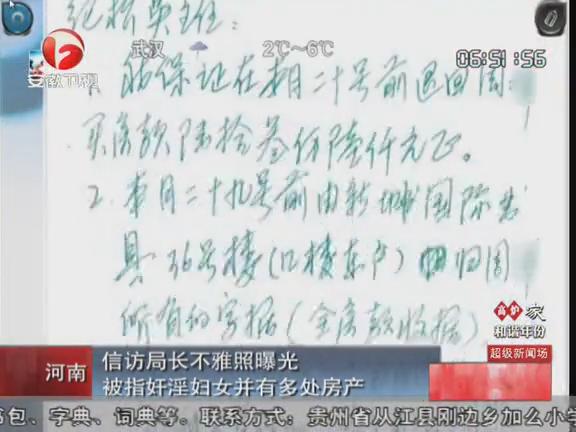 纪检吴主任:
武汉 2℃~6℃ 06:51:56
安徽卫视
1、能保证在本月二十号前退回周
买房款陆拾叁仟陆仟元正。
2、本月二十九号前由新城国际出
具36号楼(12楼东户)归周
所有的字据(全房款收据)
高炉家
和谐年份
超级新闻场
河南
信访局长不雅照曝光
被指奸淫妇女并有多处房产
书包、字典、词典等。联系方式:贵州省从江县刚边乡加么小学